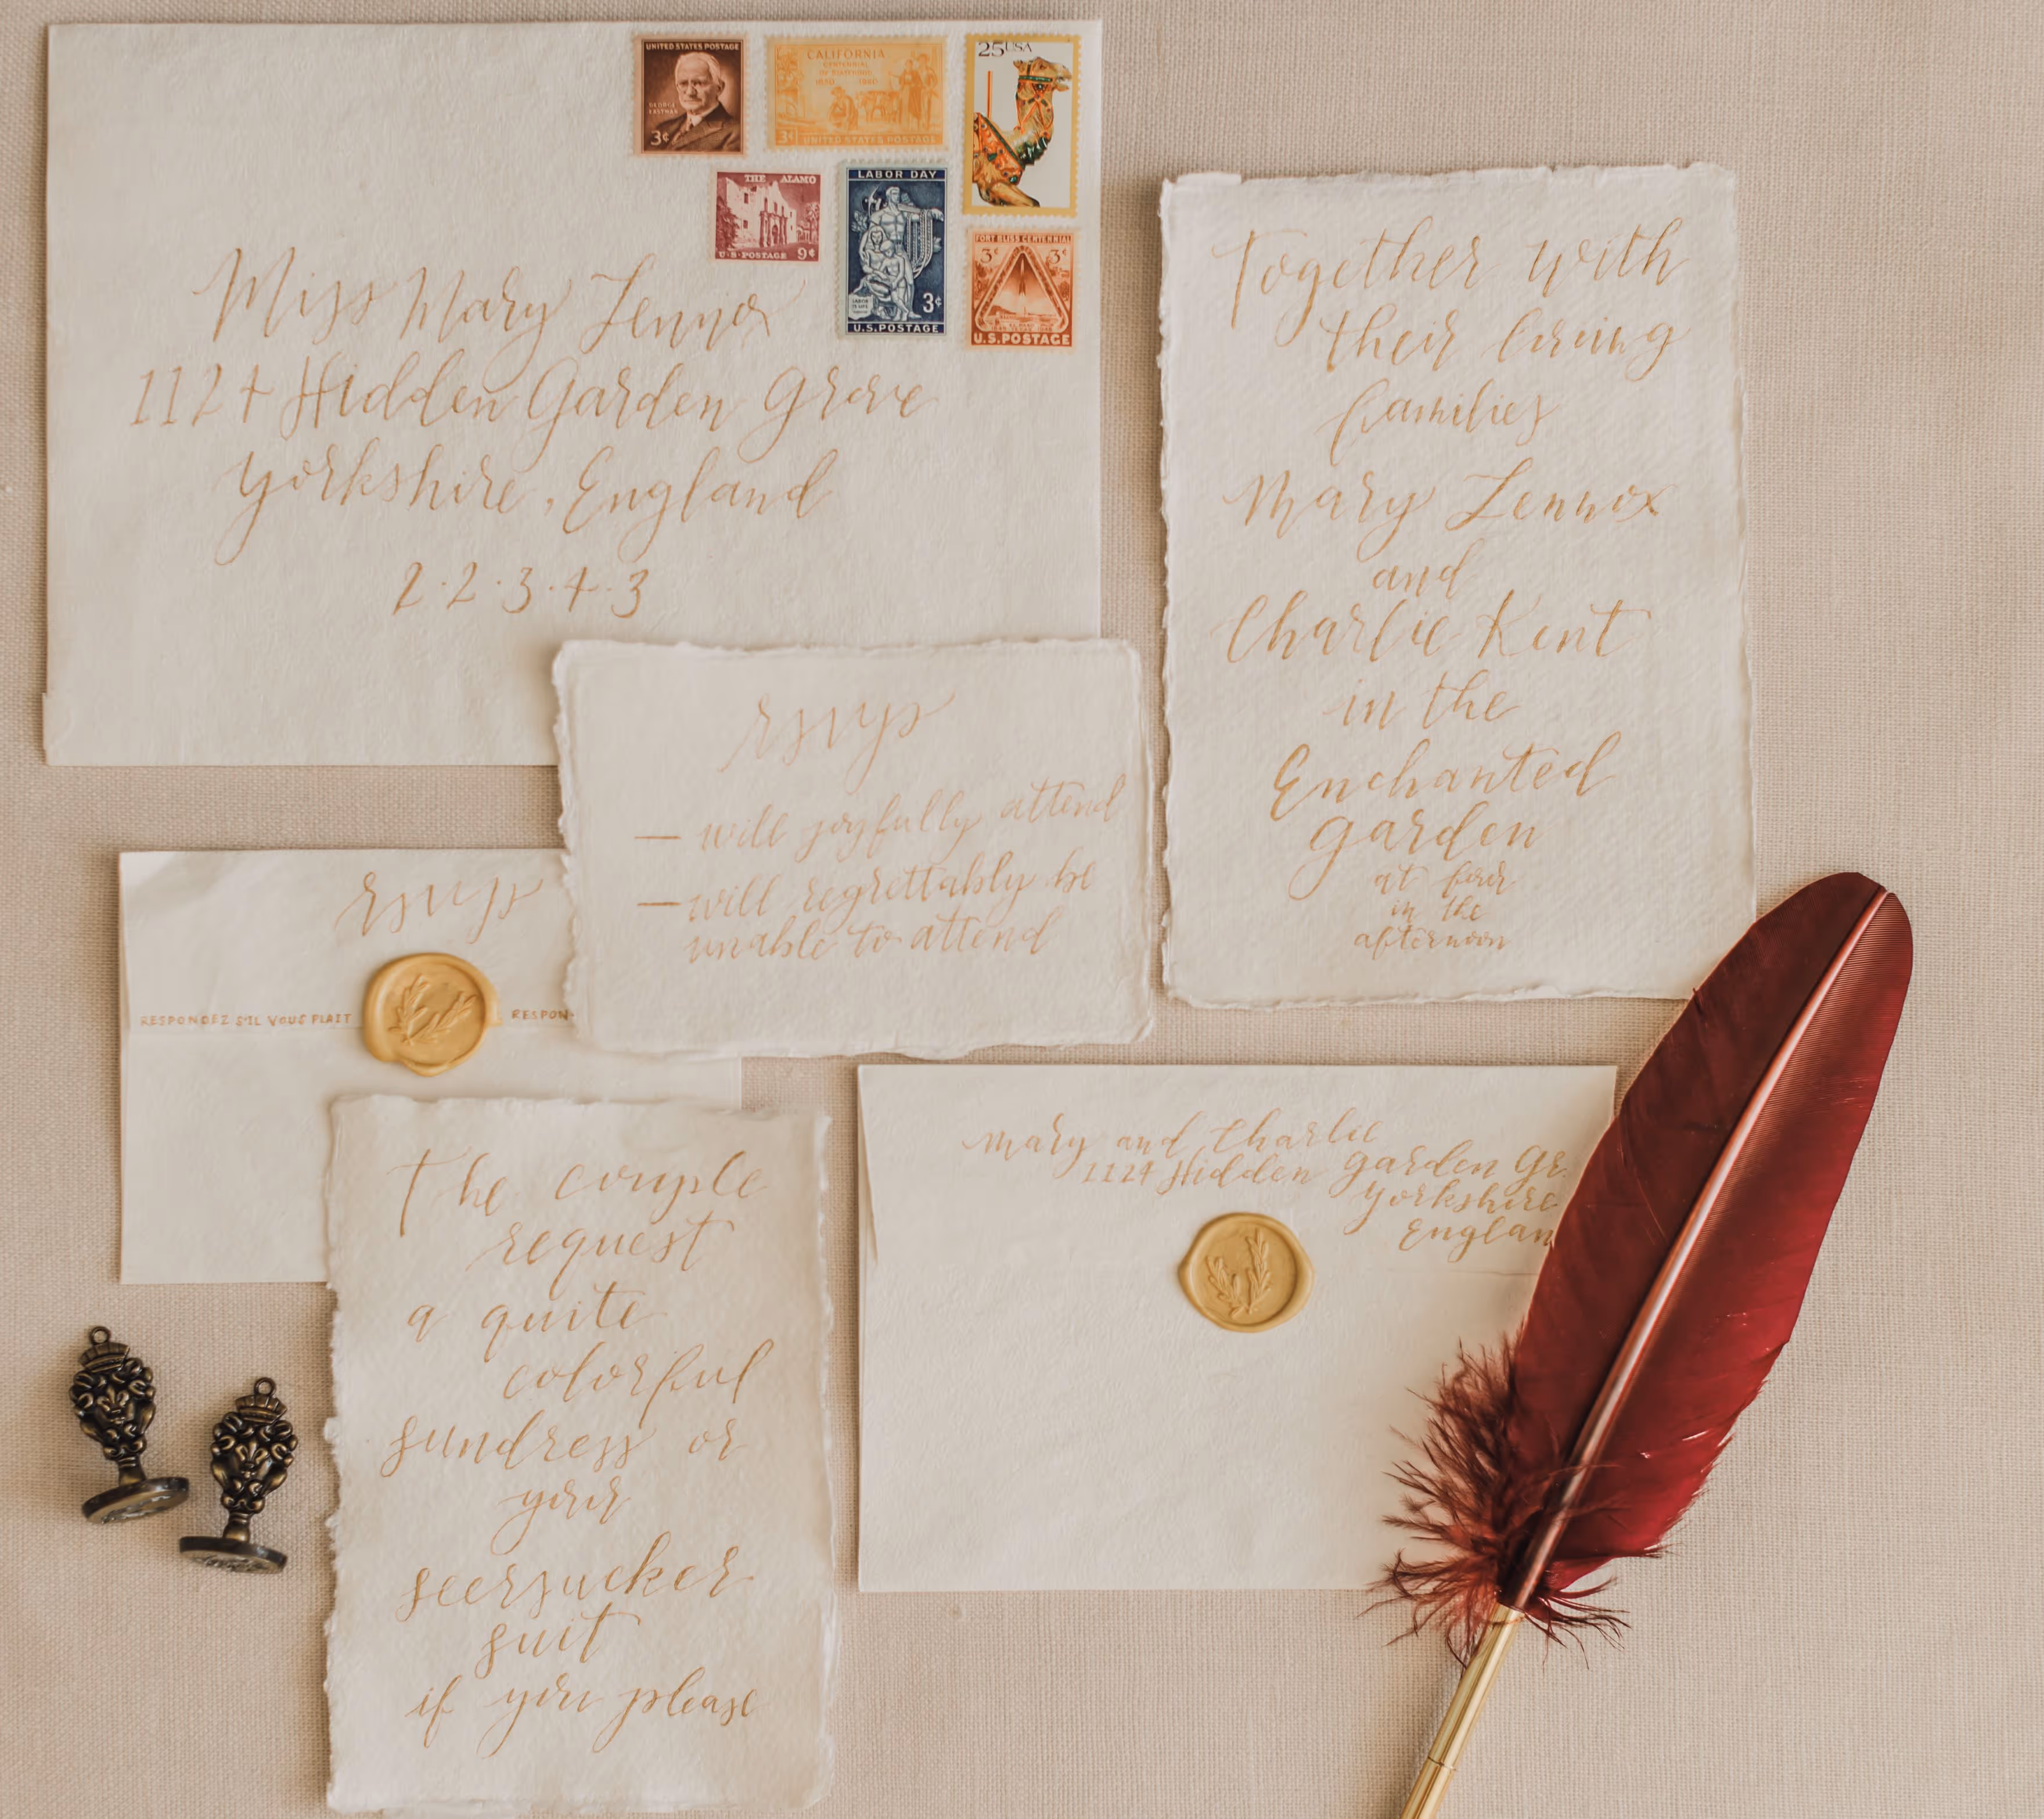 UNITED STATES POSTAGE
GEORGE
EASTMAN
3¢
CALIFORNIA
CENTENNIAL
OF STATEHOOD
1850 1950
3¢ UNITED STATES POSTAGE
25 USA
THE ALAMO
U.S. POSTAGE 9¢
LABOR DAY
LABOR
IS LIFE
3¢
U.S. POSTAGE
FORT BLISS CENTENNIAL
3¢ 3¢
U.S. POSTAGE
Miss Mary Lennox
1124 Hidden Garden Grove
Yorkshire, England
2·2·3·4·3
Together with
their loving
families
Mary Lennox
and
Charlie Kent
in the
Enchanted
garden
at four
in the
afternoon
rsvps
— will joyfully attend
— will regrettably be
unable to attend
rsvps
RESPONDEZ S'IL VOUS PLAIT RESPON
The couple
request
a quite
colorful
sundress or
your
seersucker
suit
if you please
Mary and Charlie
1124 Hidden Garden Gr.
Yorkshire
Englan